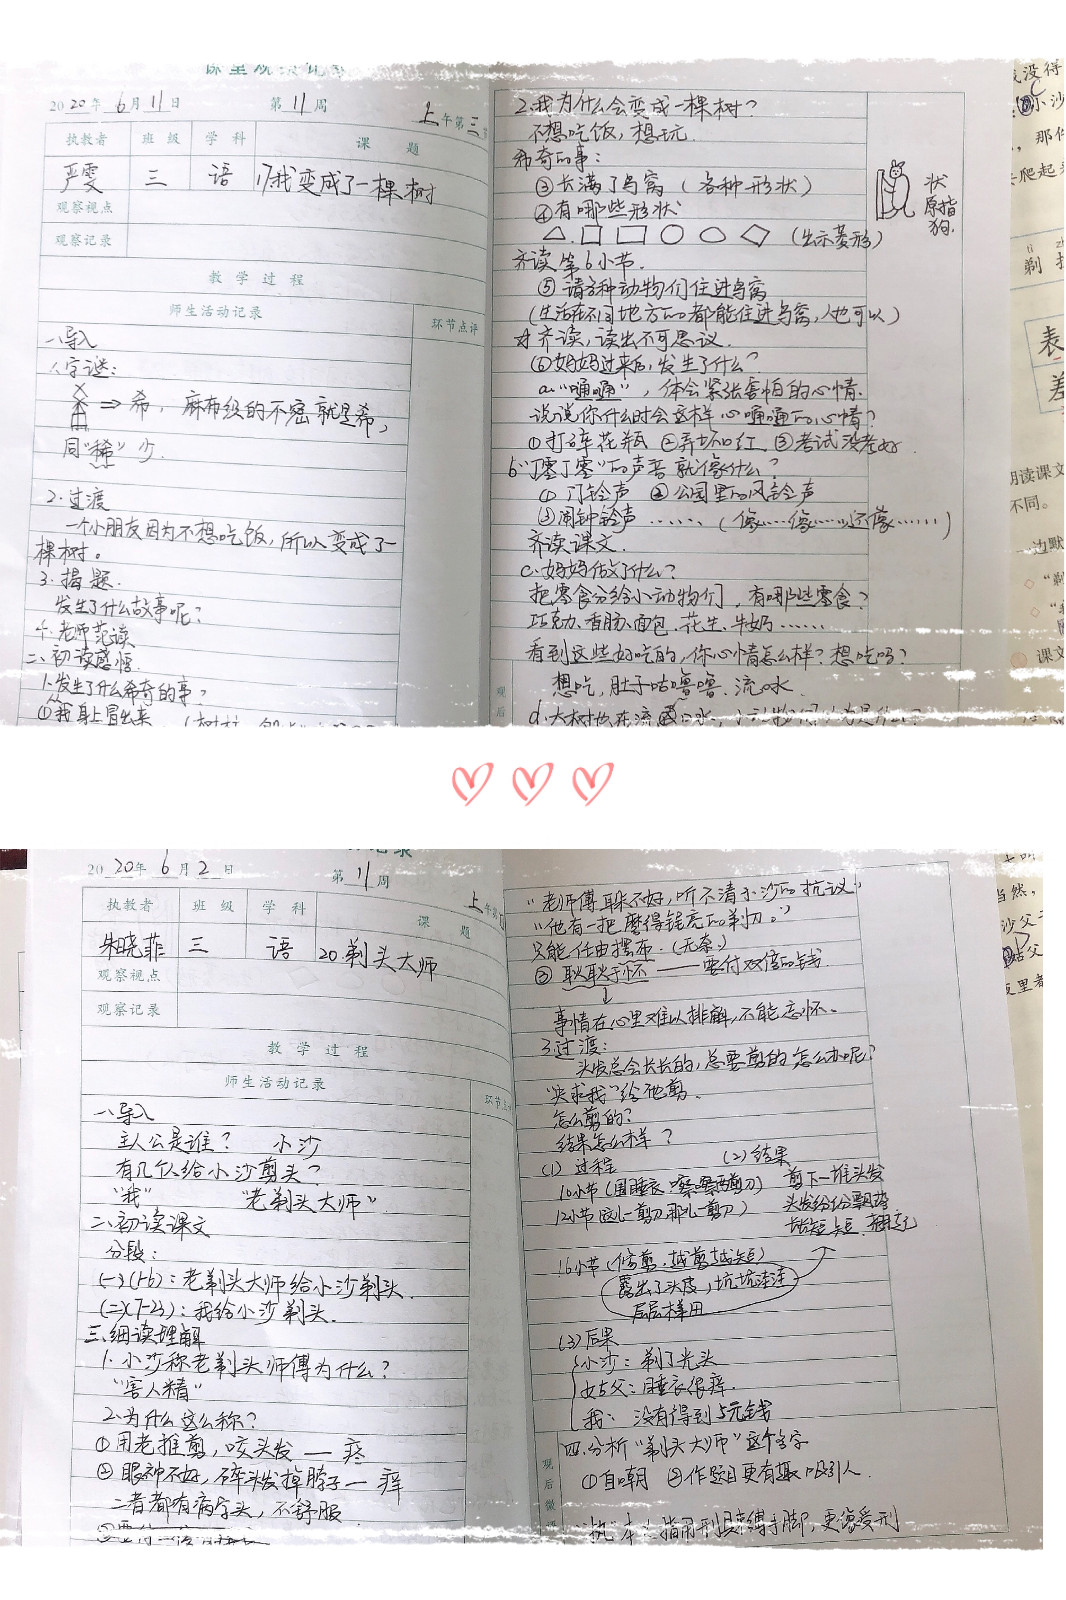 课堂观察记录
2020年6月11日 第11周 上午第三节
执教者 班级 学科 课题
严雯 三 语 17我变成了一棵树
观察视点
观察记录
教学过程
师生活动记录 环节点评
一、导入
1.字谜：
⇒希，麻布织的不密就是希，
同“稀”少.
2.过渡
一个小朋友因为不想吃饭，所以变成了一
棵树。
3.揭题.
发生了什么故事呢？
4.老师范读
二、初读感悟.
1.发生了什么希奇的事？
①我身上冒出来
2.我为什么会变成一棵树？
不想吃饭，想玩.
希奇的事：
③长满了鸟窝（各种形状）
④有哪些形状
（出示菱形）
齐读第6小节.
⑤请各种动物们住进鸟窝
（生活在不同地方的都能住进鸟窝，人也可以）
齐读，读出不可思议.
⑥妈妈过来后，发生了什么？
a.“嗵嗵”，体会紧张害怕的心情.
说说你什么时会这样心嗵嗵的心情？
①打碎花瓶 ②弄坏口红 ③考试没考好.
b.“丁零丁零”的声音就像什么？
① 门铃声 ②公园里的风铃声
③闹钟铃声……（像……像……还像……）
齐读课文.
c.妈妈做了什么？
把零食分给小动物们，有哪些零食？
巧克力、香肠、面包、花生、牛奶……
看到这些好吃的，你心情怎么样？想吃吗？
想吃，肚子咕噜噜、流口水.
d.大树也在流口水，
状
原指
狗.
观
后
2020年6月2日 第11周
执教者 班级 学科 课题
朱晓菲 三 语 20.剃头大师
观察视点
观察记录
教学过程
师生活动记录
一、导入
主人公是谁？ 小沙
有几个人给小沙剪头？
“我” “老剃头大师”.
二、初读课文
分段：
(一)(1-6)：老剃头大师给小沙剃头.
(二)(7-23)：我给小沙剃头.
三、细读理解
1.小沙称老剃头师傅为什么？
“害人精”
2.为什么这么称？
①用老推剪，咬头发—疼
②眼神不好，碎头发掉脖子—痒
二者都有病字头，不舒服
“老师傅耳朵不好，听不清小沙的抗议”
“他有一把磨得锃亮的剃刀。”
只能任由摆布.（无奈）
③耿耿于怀——要付双倍的钱.
↓
事情在心里难以排解，不能忘怀.
3.过渡：
头发总会长长的，总要剪的怎么办呢？
“央求我”给他剪.
怎么剪的？
结果怎么样？
(1) 过程 (2)结果
10小节（围睡衣.嚓嚓两剪刀） 剪下一堆头发
12小节（这儿一剪刀那儿一剪刀） 头发纷纷飘落
16小节（修剪.越剪越短）
露出了头皮，坑坑洼洼
层层梯田
(3)后果
小沙：剃了光头
姑父：睡衣很痒.
我：没有得到5元钱
四.分析“剃头大师”这个名字
①自嘲 ②作题目更有趣吸引人.
观
后